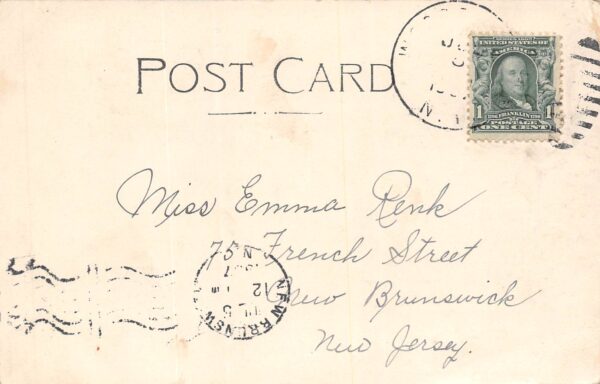 POST CARD
UNITED STATES OF
AMERICA
1 FRANKLIN 1
POSTAGE
ONE CENT
N.
Miss Emma Renk
75 French Street
New Brunswick
New Jersey.
NEW BRUNSW
12
1907
N